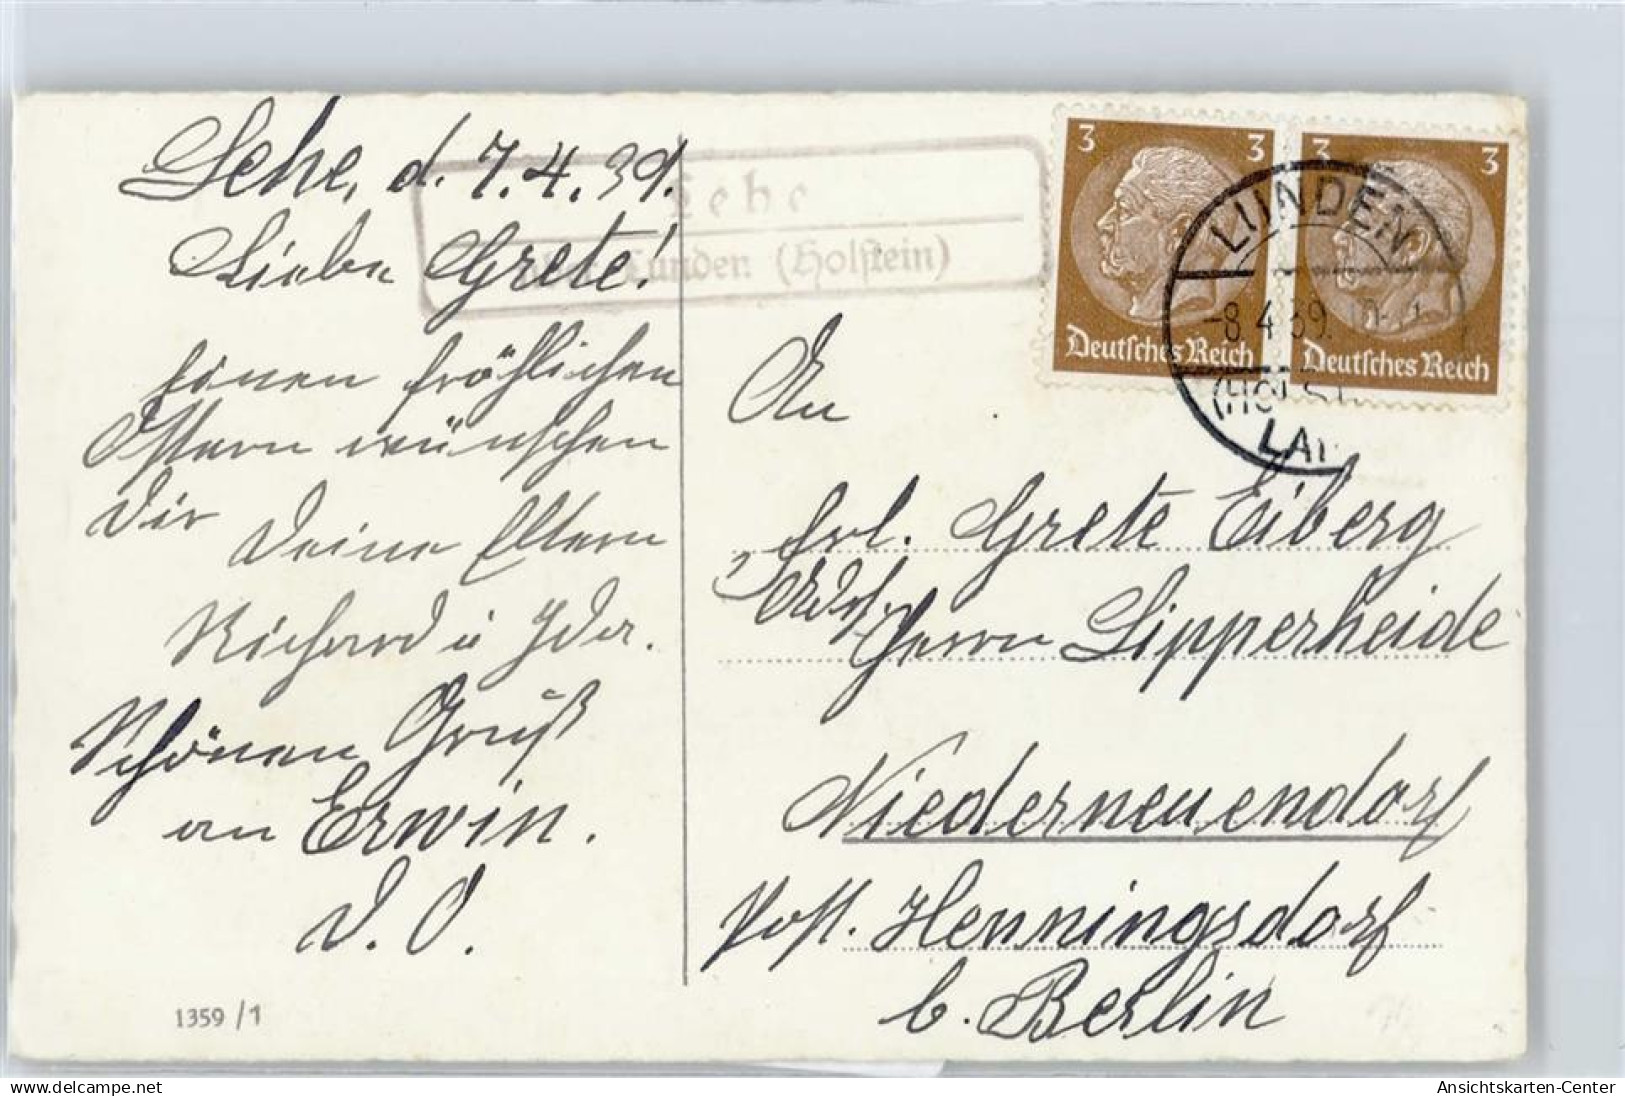 Lehe, d. 7.4.39.
Liebe Grete!
Einen fröhlichen
Ostern wünschen
Dir
Deine Eltern
Richard u Ida.
Schönen Gruß
an Erwin.
D. O.
1359/1
Lehe
über Lunden (Holstein)
3 3
Deutsches Reich
3 3
Deutsches Reich
LUNDEN
-8.4.39.
(HOLST.
An
Frl. Grete Eiberg
Adr.
Herrn Lipperheide
Niederneuendorf
Post. Henningsdorf
b. Berlin
www.delcampe.net
Ansichtskarten-Center